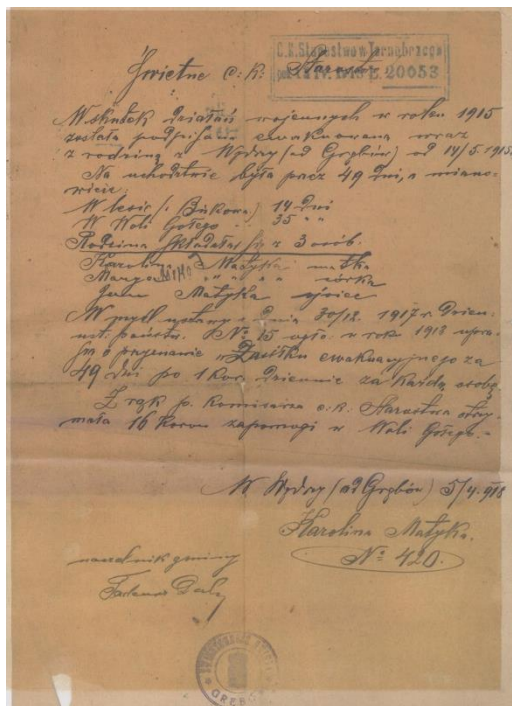 C.K. Starostwo w Tarnobrzegu
20053
Świetne c. k. Starostwo
W skutek działań wojennych w roku 1915
została podpisana ewakuowana wraz
z rodziną z Wydrzy (ad Grębów) od 14/5 1915.
Na uchodztwie była przez 49 dni, a miano-
wicie:
W lesie (. Bukowa) 14 dni
W Woli Gołego 35 " "
Rodzina składała się z 3 osób.
Karolina Matyka matka
Marya " " córka
Jan Matyka ojciec
W myśl ustawy z dnia 30/12. 1917 r. Dzien.
ust. państw. No 15 ogło. w roku 1918 upra-
o przyznanie "Zasiłku ewakuacyjnego za
49 dni po 1 Kor. dziennie za każdą osobę.
Z rąk p. Komisarza c. k. Starostwa otrzy-
mała 16 koron zapomogi w Woli Gołego.-
W Wydrzy (ad Grębów) 5/4. 918
Karolina Matyka.
No 420.
naczelnik gminy
GRĘBÓW